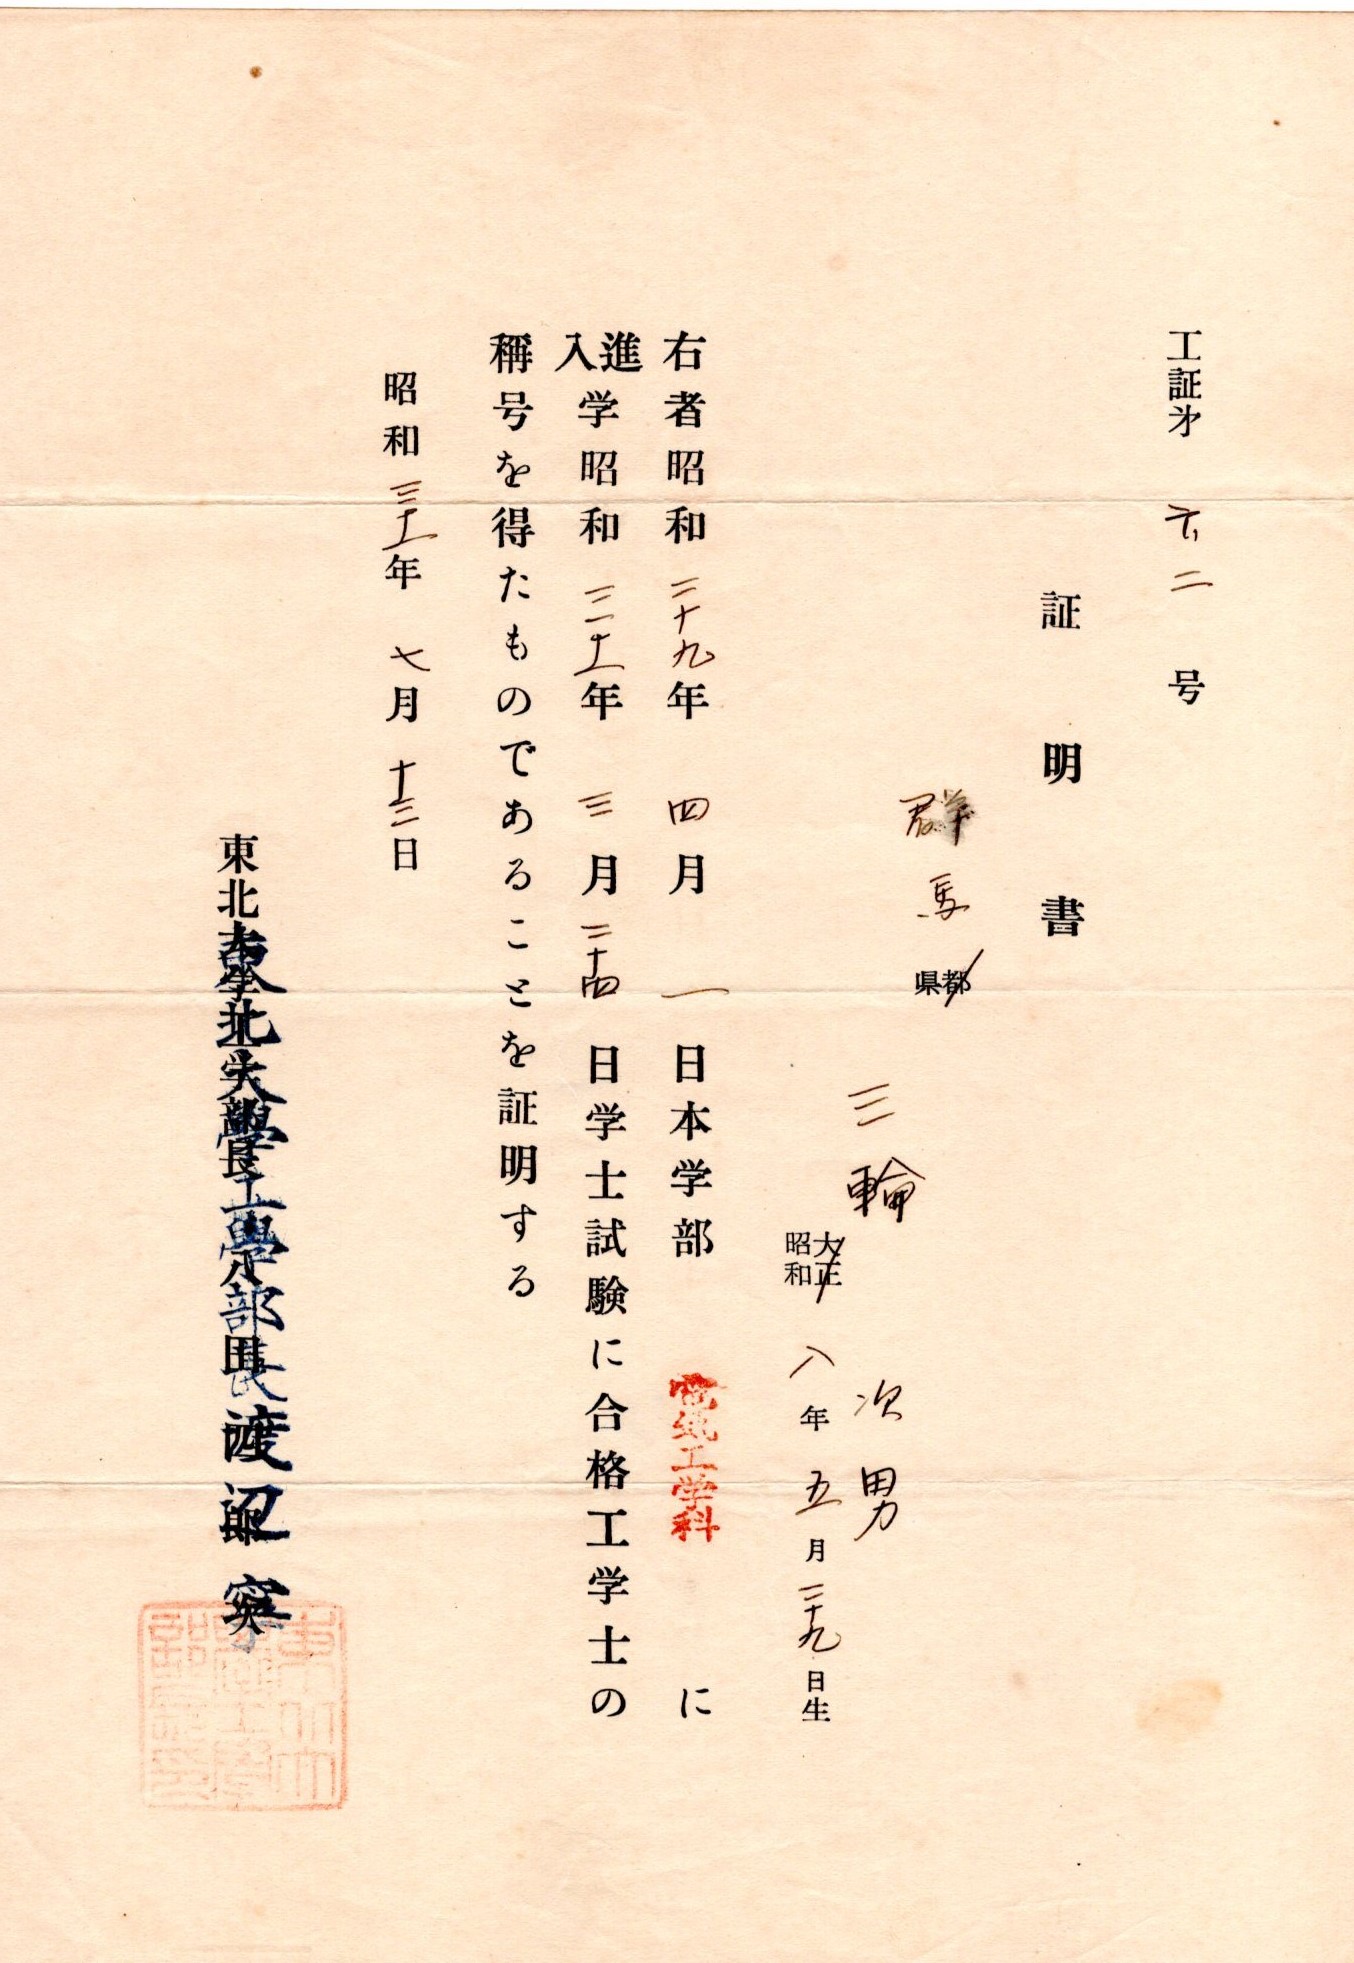 工証才 六二 号
証明書
群馬 都県
三輪 次男
大正昭和 八年五月二十九日生
右者昭和二十九年四月一日本学部電気工学科に
進入学昭和三十一年三月二十四日学士試験に合格工学士の
稱号を得たものであることを証明する
昭和三十一年七月十三日
東北大學工學部長 渡辺寧